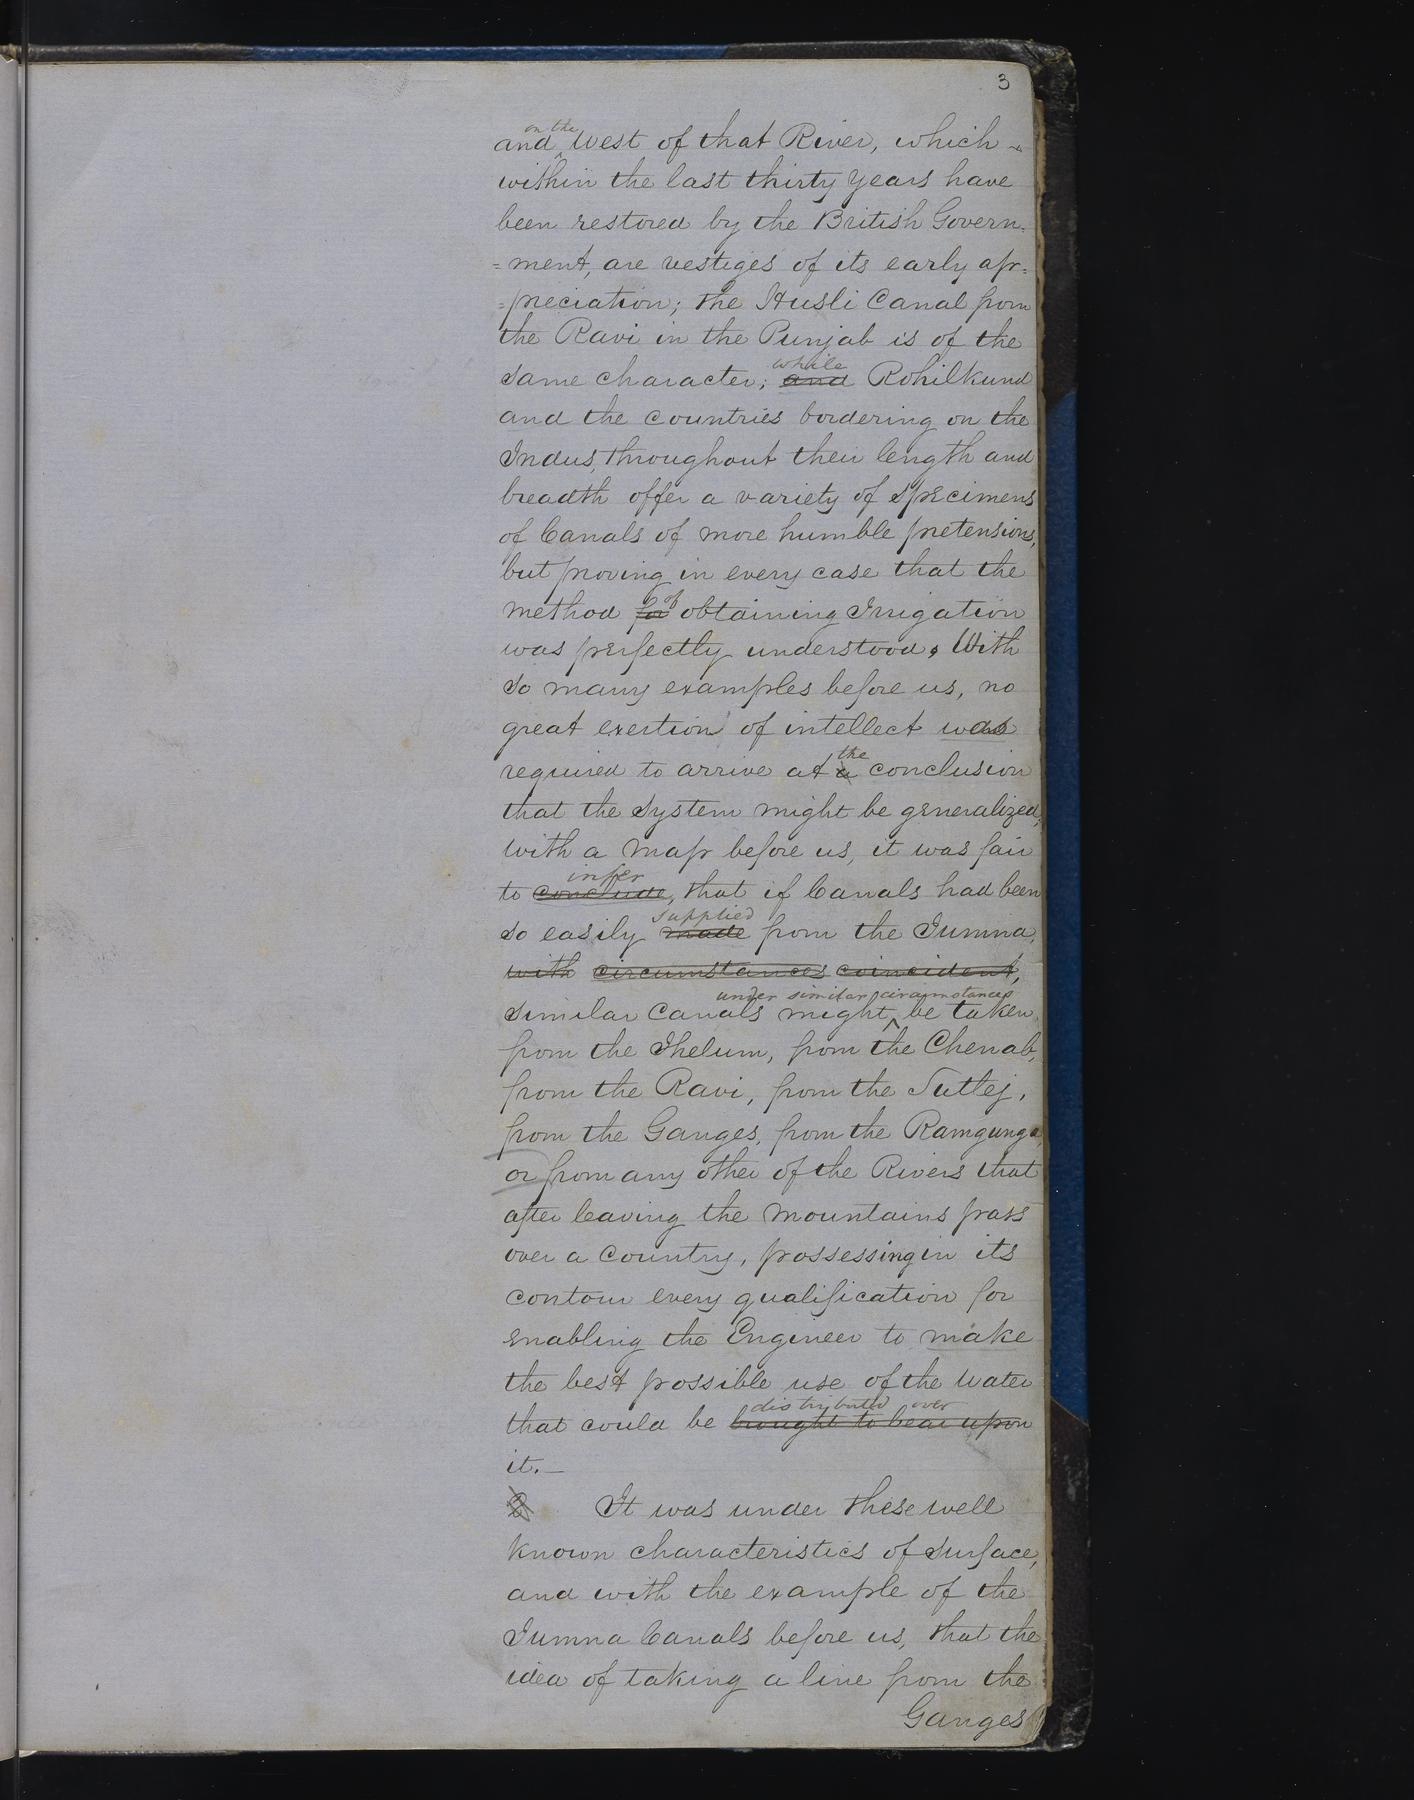 3
on the
and ^ West of that River, which
within the last thirty years have
been restored by the British Govern-
=ment, are vestiges of its early ap=
=preciation; the Husli Canal from
the Ravi in the Punjab is of the
while
same character; and Rohilkund
and the countries bordering on the
Indus, throughout their length and
breadth offer a variety of specimens
of Canals of more humble pretensions,
but proving in every case that the
of
method for obtaining Irrigation
was perfectly understood. With
so many examples before us, no
great exertion of intellect was
the
required to arrive at a conclusion
that the system might be generalized;
with a map before us, it was fair
infer
to conclude, that if Canals had been
supplied
so easily made from the Jumna,
with circumstances coincident,
under similar circumstances
similar Canals might ^ be taken
from the Jhelum, from the Chenab,
from the Ravi, from the Sutlej,
from the Ganges, from the Ramgunga,
or from any other of the Rivers that
after leaving the mountains pass
over a country, possessing in its
contour every qualification for
enabling the Engineer to make
the best possible use of the water
distributed over
that could be brought to bear upon
it._
2 It was under these well
known characteristics of surface,
and with the example of the
Jumna Canals before us, that the
idea of taking a line from the
Ganges